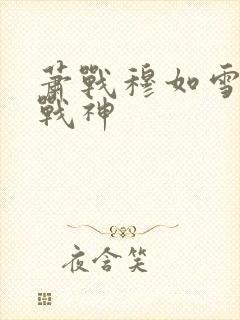 萧戰穆如雪
戰神
夜含笑